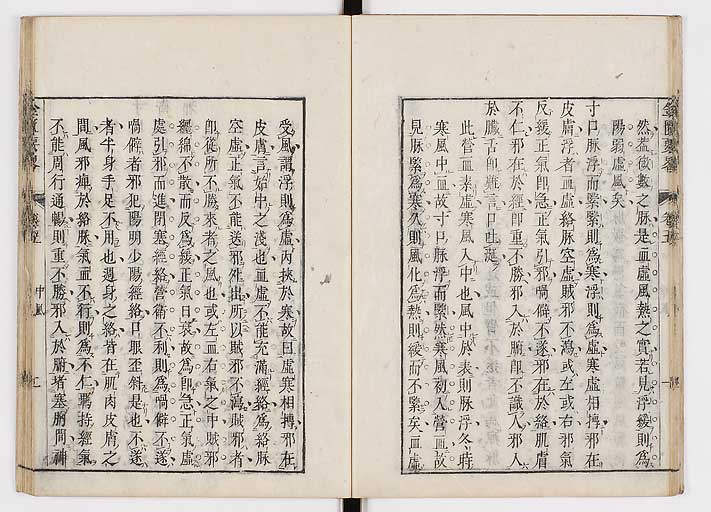 然蓋微數之脉是血虛風熱之實若見浮緩則爲
陽弱虛風矣
寸口脉浮而緊緊則爲寒浮則爲虛寒虛相搏邪在
皮膚浮者血虛絡脉空虛賊邪不瀉或左或右邪氣
反緩正氣卽急正氣引邪喎僻不遂邪在於絡肌膚
不仁邪在於經卽重不勝邪入於腑卽不識人邪入
於臟舌卽難言口吐涎
此營血素虛寒風入中也風中於表則脉浮冬時
寒風中血故寸口脉浮而緊然寒風初入營血故
見脉緊爲寒久則風化爲熱則緩而不緊矣血虛
受風謂浮則爲虛丙挾於寒故曰虛寒相搏邪在
皮膚言始中之淺也血虛不能充滿經絡爲絡脉
空虛正氣不能送邪外出所以賊邪不瀉賊邪者
卽從所不勝來者之風也或左血右氣之中賊邪
纏綿不散而反爲緩正氣日衰故爲卽急正氣虛
處引邪而進閉塞經絡營衛不利則爲喎僻不遂
喎僻者邪犯陽明少陽經絡口眼歪斜是也不遂
者半身手足不用也週身之絡皆在肌肉皮膚之
間風邪痺於絡脉氣血不行則爲不仁
不能周行通暢則重不勝邪入於腑堵塞胸間神
金匱要畧
中風
九